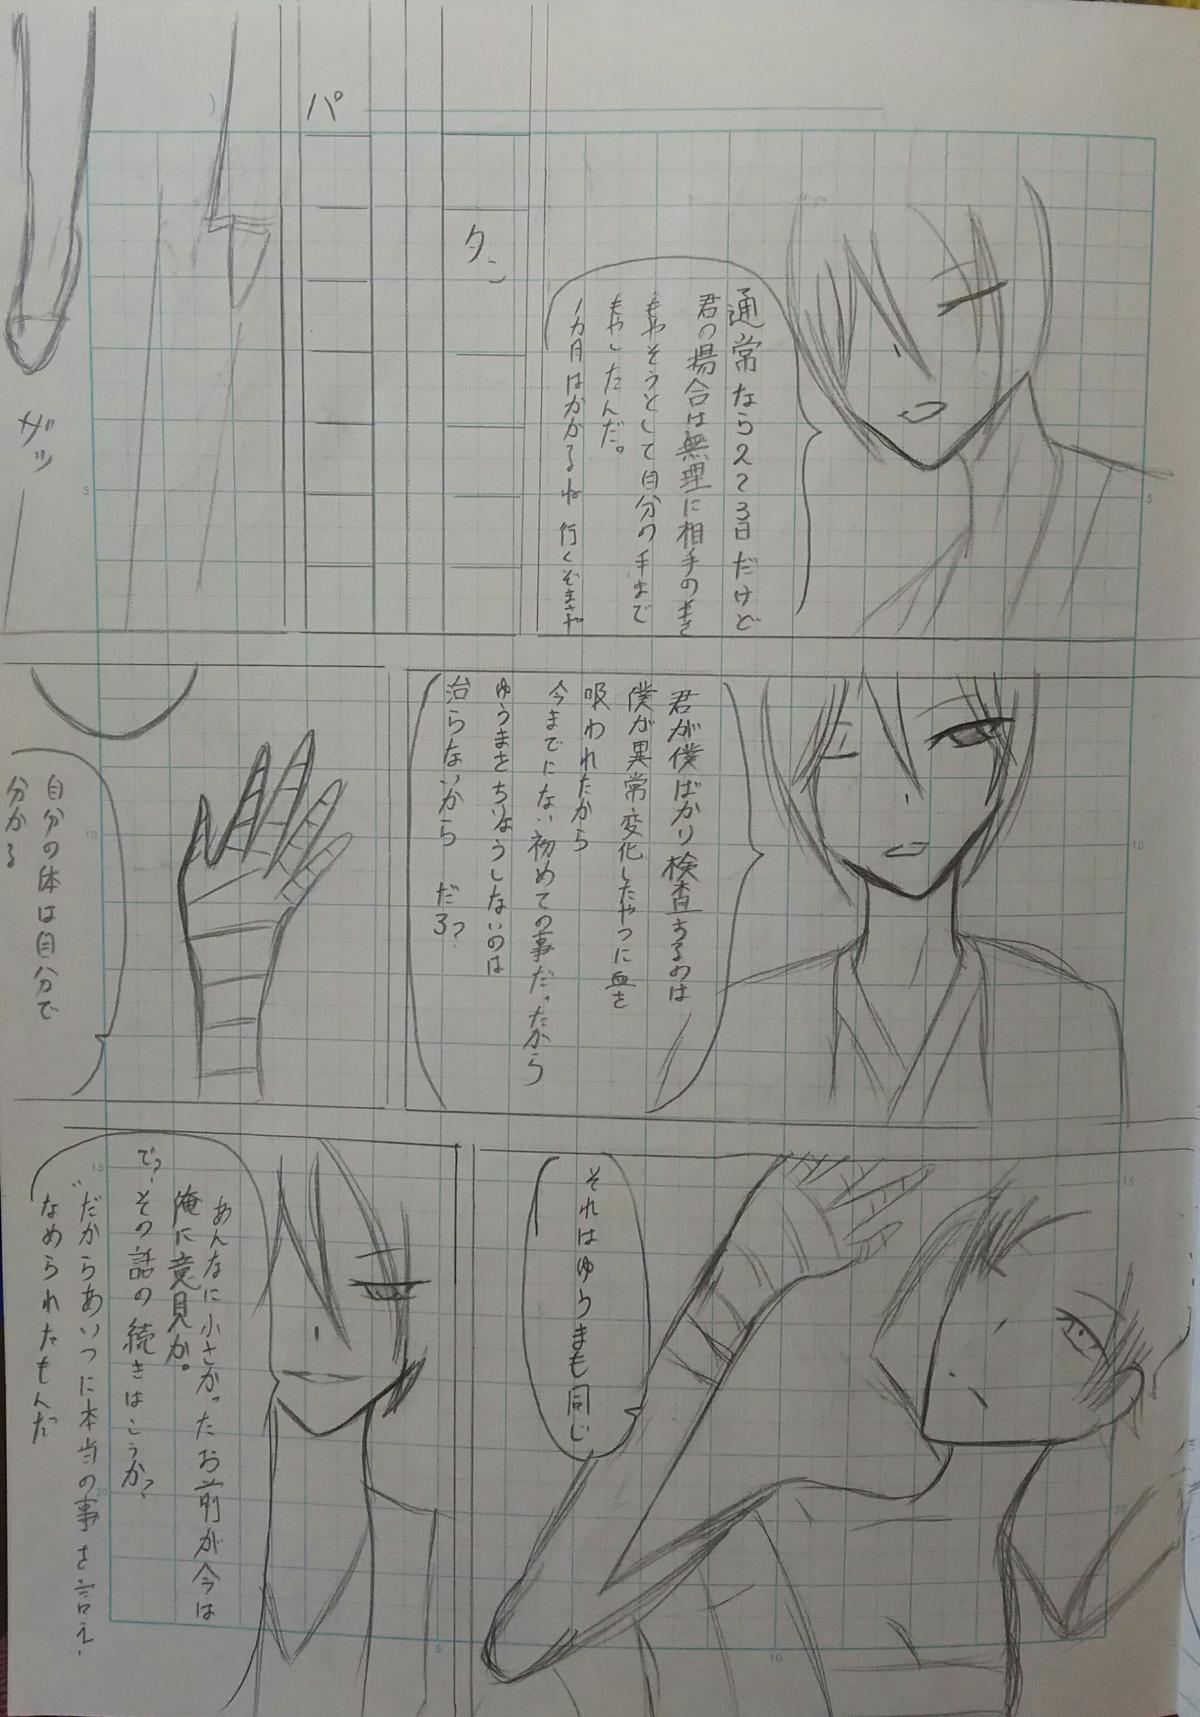 通常なら2〜3日だけど
君の場合は無理に相手のまき
もやそうとして自分の手まで
もやしたんだ。
1カ月はかかるね 行くぞまさや
パ
タン
ザッ
君が僕ばかり検査するのは
僕が異常変化したやつに血を
吸われたから
今までにない初めての事だったから
ゆうまをちりょうしないのは
治らないから だろ?
自分の体は自分で
分かる
それはゆうまも同じ
あんなに小さかったお前が今は
俺に意見か。
で?その話の続きはこうか?
"だからあいつに本当の事を言え"
なめられたもんだ